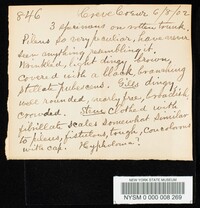 846 Creve Coeur 6/8/02
3 specimens on rotten trunk.
Pileus so very peculiar, have never
seen anything resembling it.
Wrinkled, light dingy brown,
covered with a black, branching
stellate pubescens. Gills dingy
well rounded, nearly free, broadish
crowded. Stem clothed with
fibrillate scales somewhat similar
to pileus, fistulous, tough, concolorous
with cap. Hypholoma?
NEW YORK STATE MUSEUM
NYSM 0 000 008 269